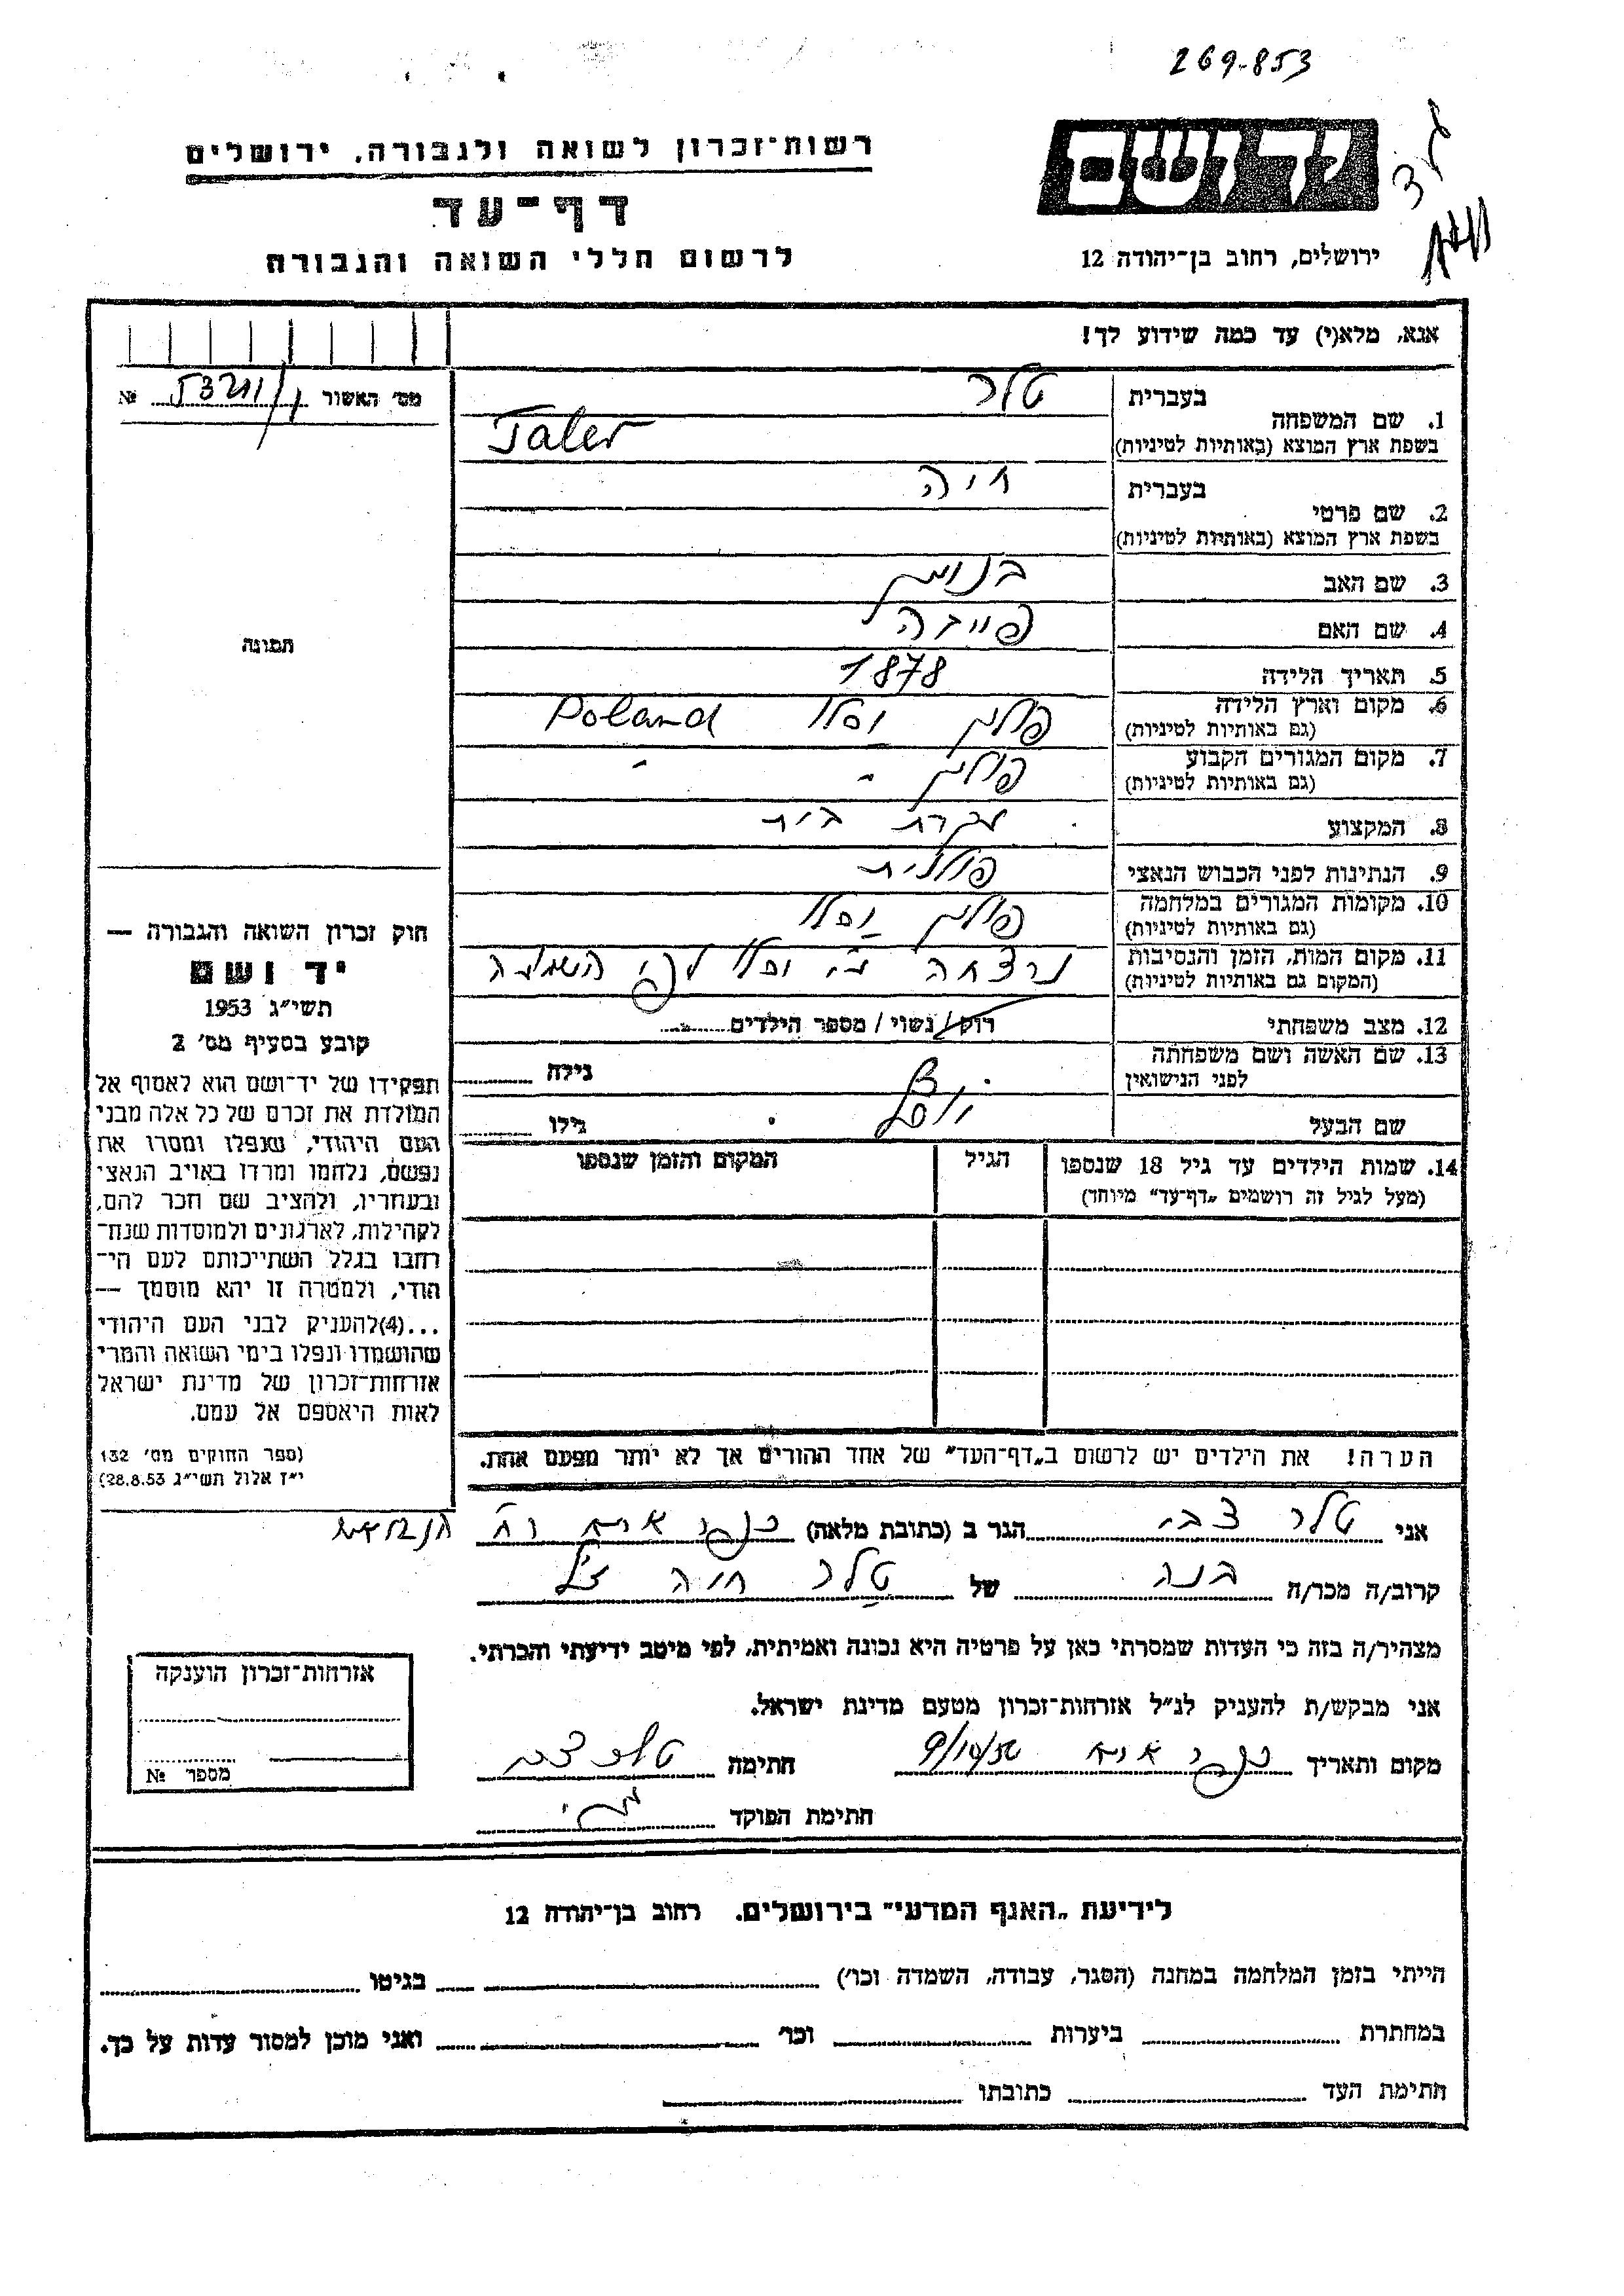 269-853
יד ושם
רשות־זכרון לשואה ולגבורה, ירושלים
דף־עד
לרשום חללי השואה והגבורה
ירושלים, רחוב בן־יהודה 12
אנא, מלא(י) עד כמה שידוע לך!
מס' האשור № 
1. שם המשפחה
בעברית טלר
בשפת ארץ המוצא (באותיות לטיניות) Taler
2. שם פרטי
בעברית חיה
בשפת ארץ המוצא (באותיות לטיניות)
3. שם האב
4. שם האם
5. תאריך הלידה 1878
6. מקום וארץ הלידה
(גם באותיות לטיניות) פולין יסלו Poland
7. מקום המגורים הקבוע
(גם באותיות לטיניות) פולין " "
8. המקצוע עקרת בית
9. הנתינות לפני הכבוש הנאצי פולנית
10. מקומות המגורים במלחמה
(גם באותיות לטיניות) פולין יסלו
11. מקום המות, הזמן והנסיבות
(המקום גם באותיות לטיניות) נרצחה יסלו
12. מצב משפחתי רוק/ נשוי / מספר הילדים
13. שם האשה ושם משפחתה
לפני הנישואין
גילה
שם הבעל
גילו
14. שמות הילדים עד גיל 18 שנספו
(מעל לגיל זה רושמים „דף־עד" מיוחד)
הגיל
המקום והזמן שנספו
הערה! את הילדים יש לרשום ב„דף־העד" של אחד ההורים אך לא יותר מפעם אחת.
תמונה
חוק זכרון השואה והגבורה —
יד ושם
תשי"ג 1953
קובע בסעיף מס' 2
תפקידו של יד־ושם הוא לאסוף אל
המולדת את זכרם של כל אלה מבני
העם היהודי, שנפלו ומסרו את
נפשם, נלחמו ומרדו באויב הנאצי
ובעוזריו, ולהציב שם וזכר להם,
לקהילות, לארגונים ולמוסדות שנח־
רבו בגלל השתייכותם לעם הי־
הודי, ולמטרה זו יהא מוסמך —
...(4)להעניק לבני העם היהודי
שהושמדו ונפלו בימי השואה והמרי
אזרחות־זכרון של מדינת ישראל
לאות היאספם אל עמם.
(ספר החוקים מס' 132
י"ז אלול תשי"ג 28.8.53)
אני טלר צבי הגר ב (כתובת מלאה)
קרוב/ה מכר/ה בנה של טלר חיה ז"ל
מצהיר/ה בזה כי העדות שמסרתי כאן על פרטיה היא נכונה ואמיתית, לפי מיטב ידיעתי והכרתי.
אני מבקש/ת להעניק לנ"ל אזרחות־זכרון מטעם מדינת ישראל.
מקום ותאריך 9/10/56 חתימה טלר צבי
חתימת הפוקד
אזרחות־זכרון הוענקה
מספר №
לידיעת „האגף המדעי" בירושלים. רחוב בן־יהודה 12
הייתי בזמן המלחמה במחנה (הסגר, עבודה, השמדה וכו') בגיטו
במחתרת ביערות וכו' ואני מוכן למסור עדות על כך.
חתימת העד כתובתו